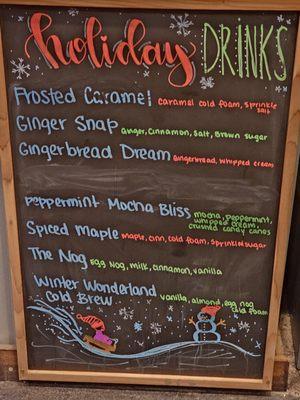 holiday DRINKS
Frosted Caramel caramel cold foam, sprinkle
salt
Ginger Snap ginger, cinnamon, salt, Brown sugar
Gingerbread Dream gingerbread, whipped cream
peppermint Mocha Bliss mocha, peppermint,
whipped cream,
crushed candy canes
Spiced Maple maple, cinn, cold foam, sprinkle sugar
The Nog egg nog, milk, cinnamon, vanilla
Winter Wonderland
Cold Brew vanilla, almond, egg nog
cold foam